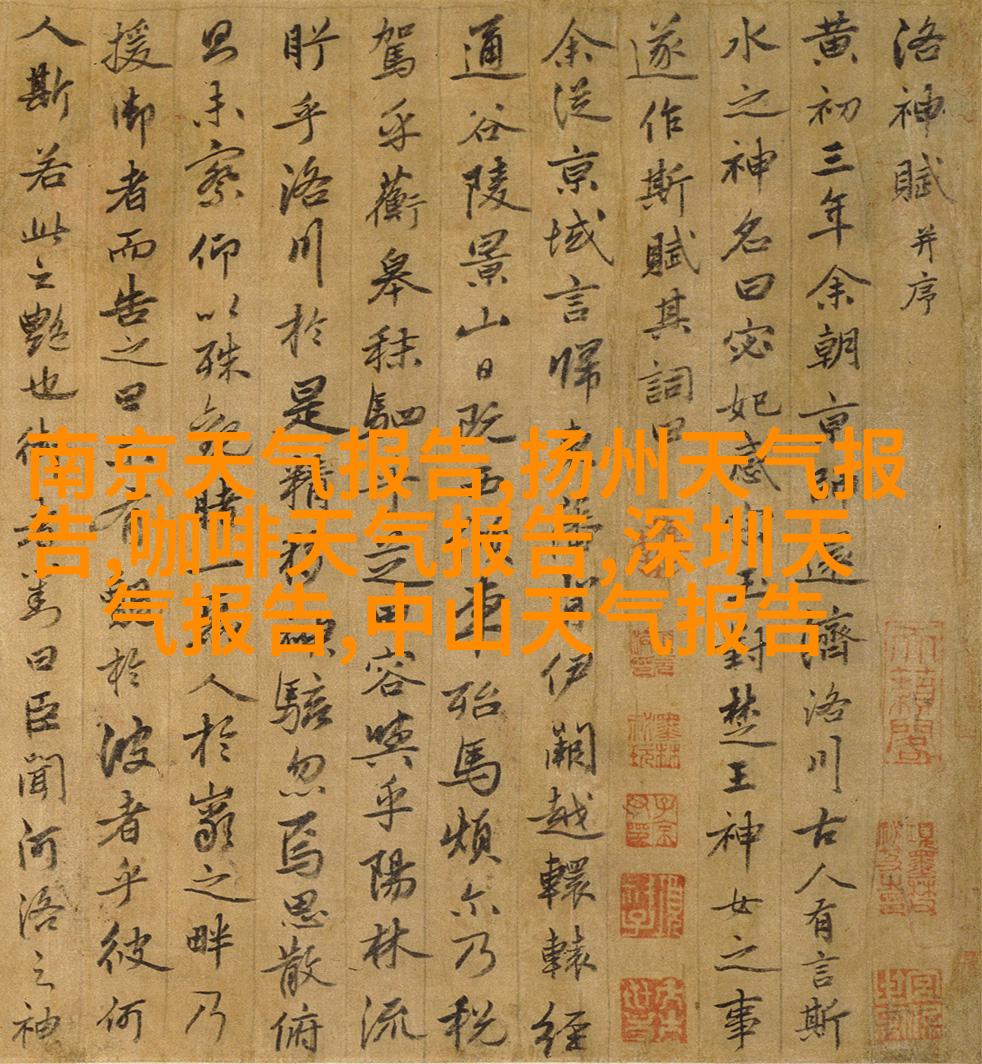 洛神賦并序
黄初三年余朝京師還濟洛川古人有言斯
水之神名曰宓妃感宋玉對楚王神女之事
遂作斯賦其詞曰
余従京域言歸東藩背伊闕越轘轅經
通谷陵景山日既西傾車殆馬煩尒乃税
駕乎蘅皋秣駟乎芝田容與乎陽林流
眄乎洛川於是精移神駭忽焉思散俯
則未察仰以殊觀睹一麗人於巖之畔乃
援御者而告之曰尒有覿於彼者乎彼何
人斯若此之艷也御者對曰臣聞河洛之神
南京天气报告,扬州天气报
告,咖啡天气报告,深圳天
气报告,中山天气报告